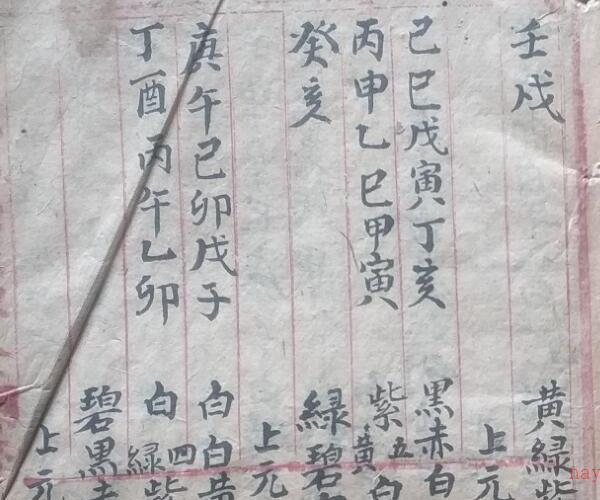 壬戌 黄緑紫
上元
己巳戊寅丁亥 黑赤白
丙申乙巳甲寅 紫五黄白
癸亥 緑碧
上元
庚午己卯戊子 白白黄
丁酉丙午乙卯 白四緑紫
碧黑赤
上元
nay